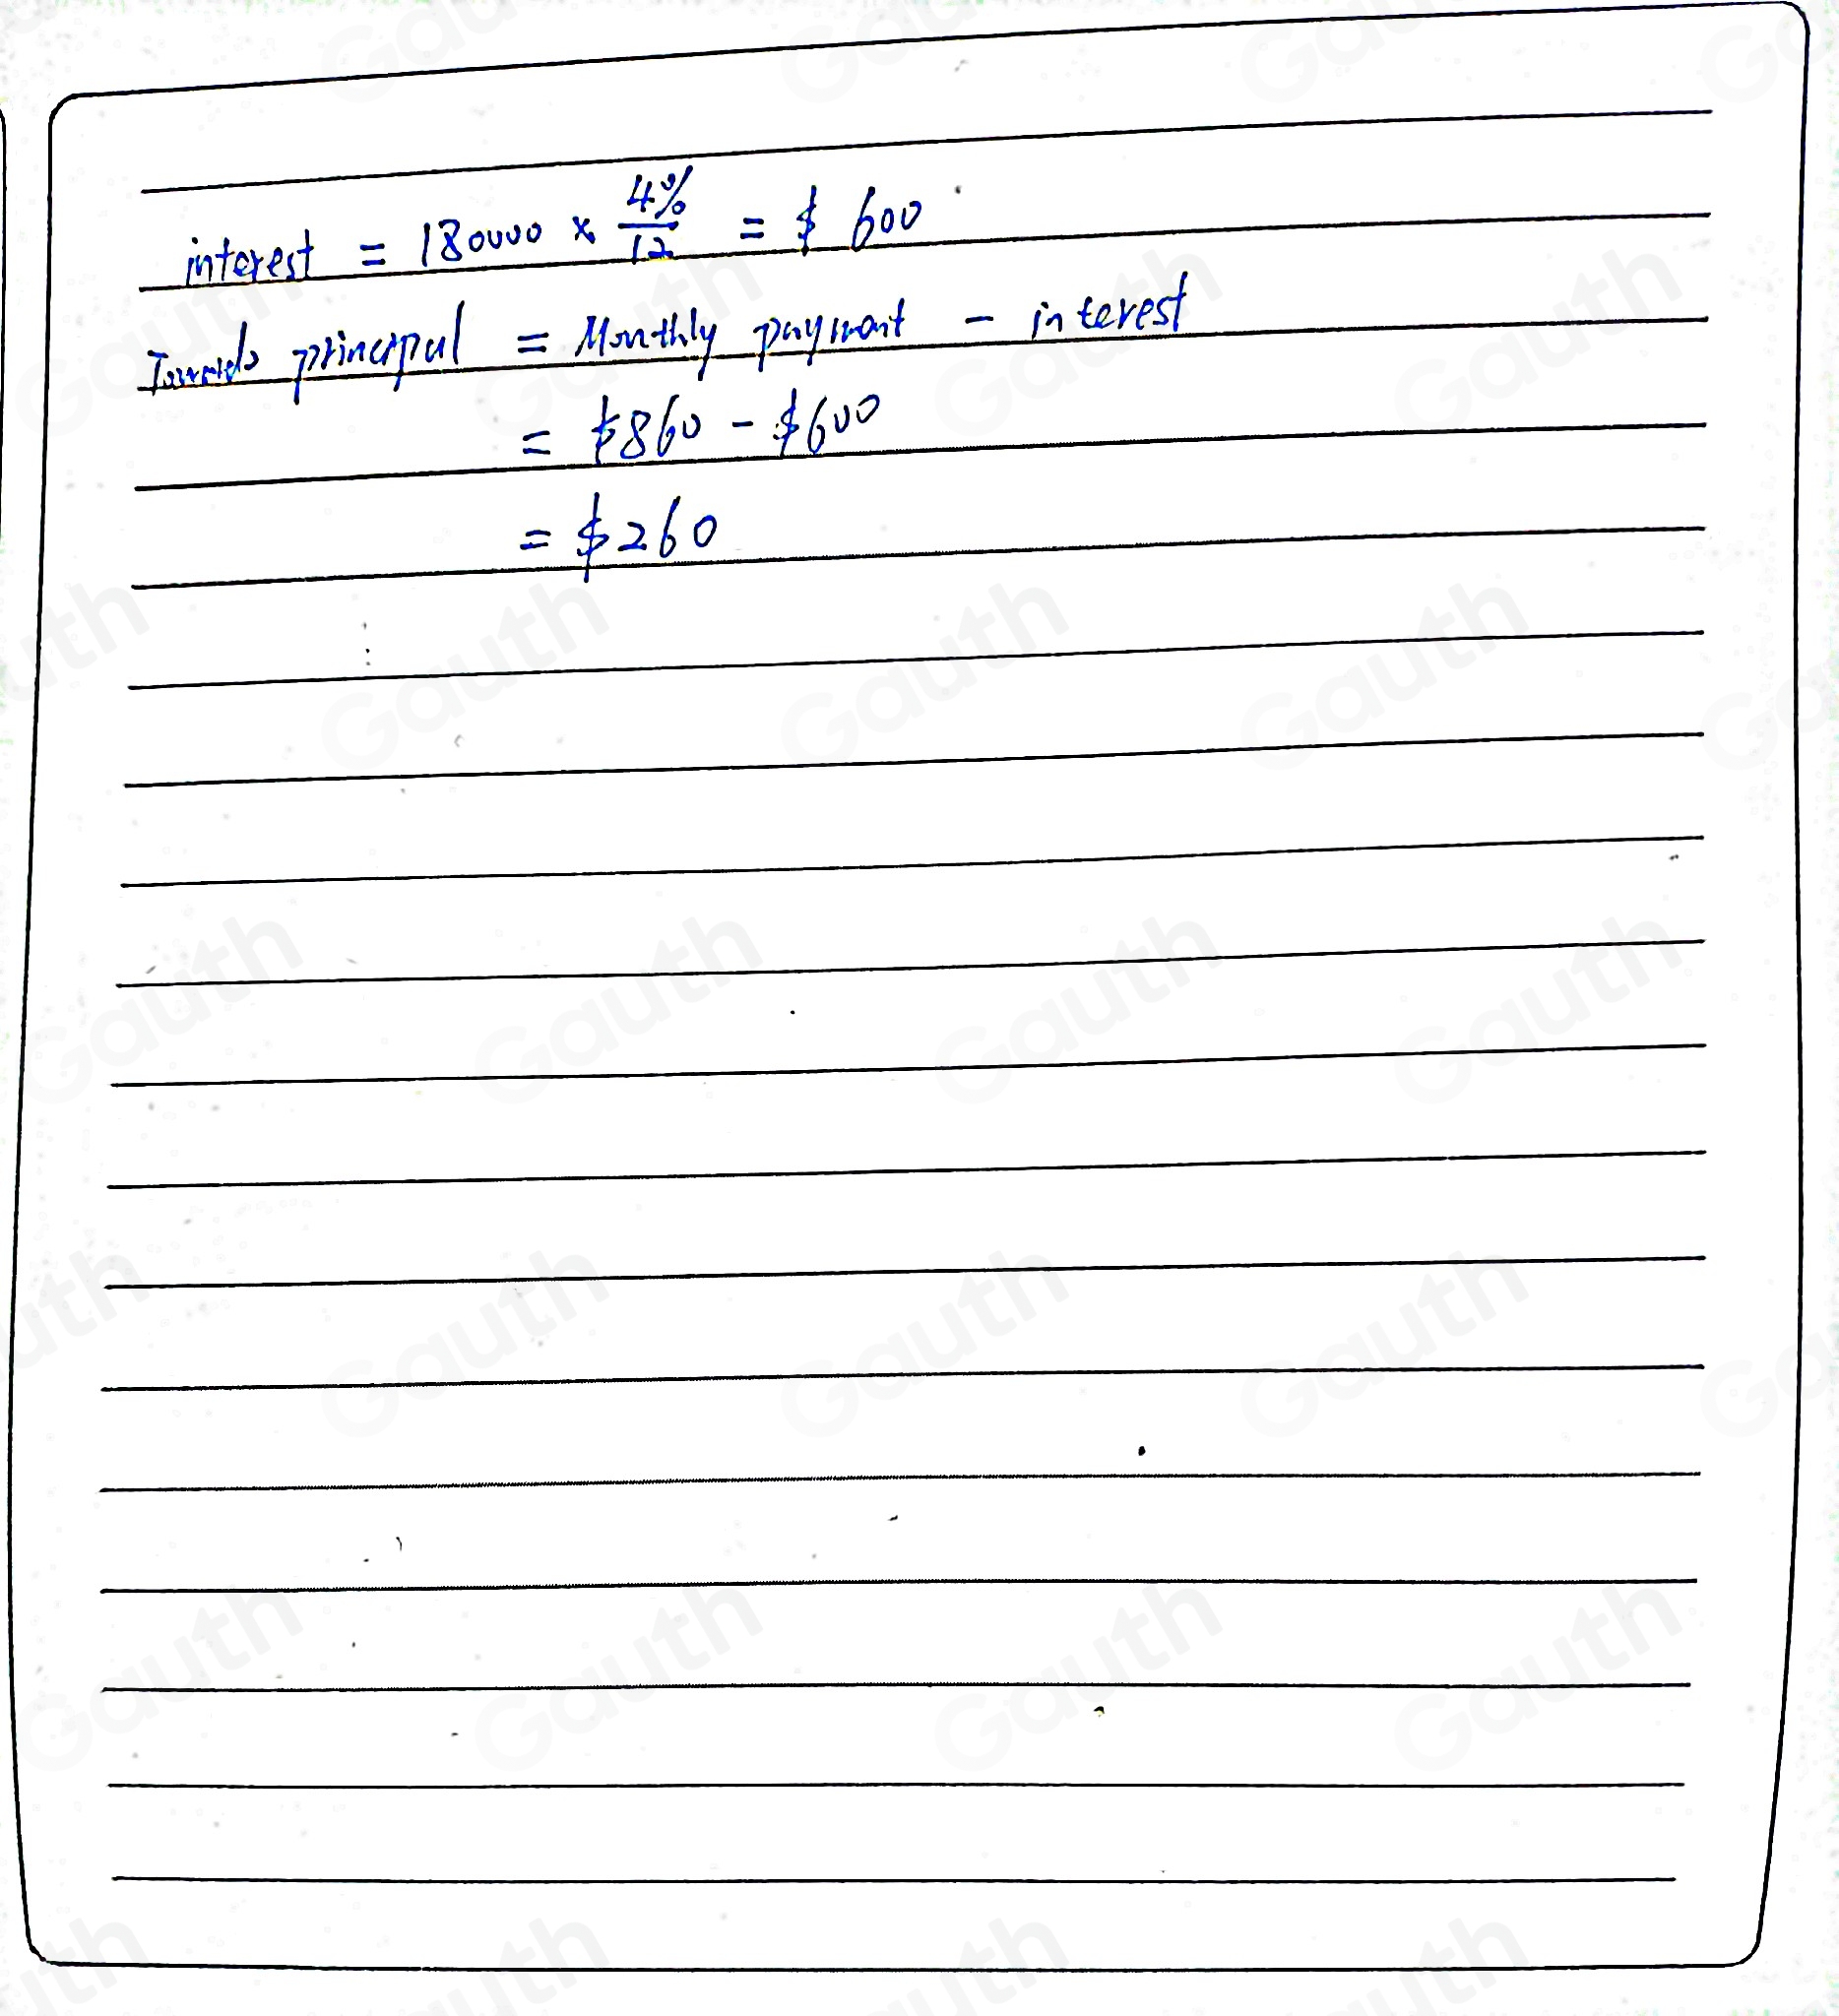 interest = 180000 × 4%/12 = $ 600
Towards principal = Monthly payment - interest
= $860 - $600
= $260